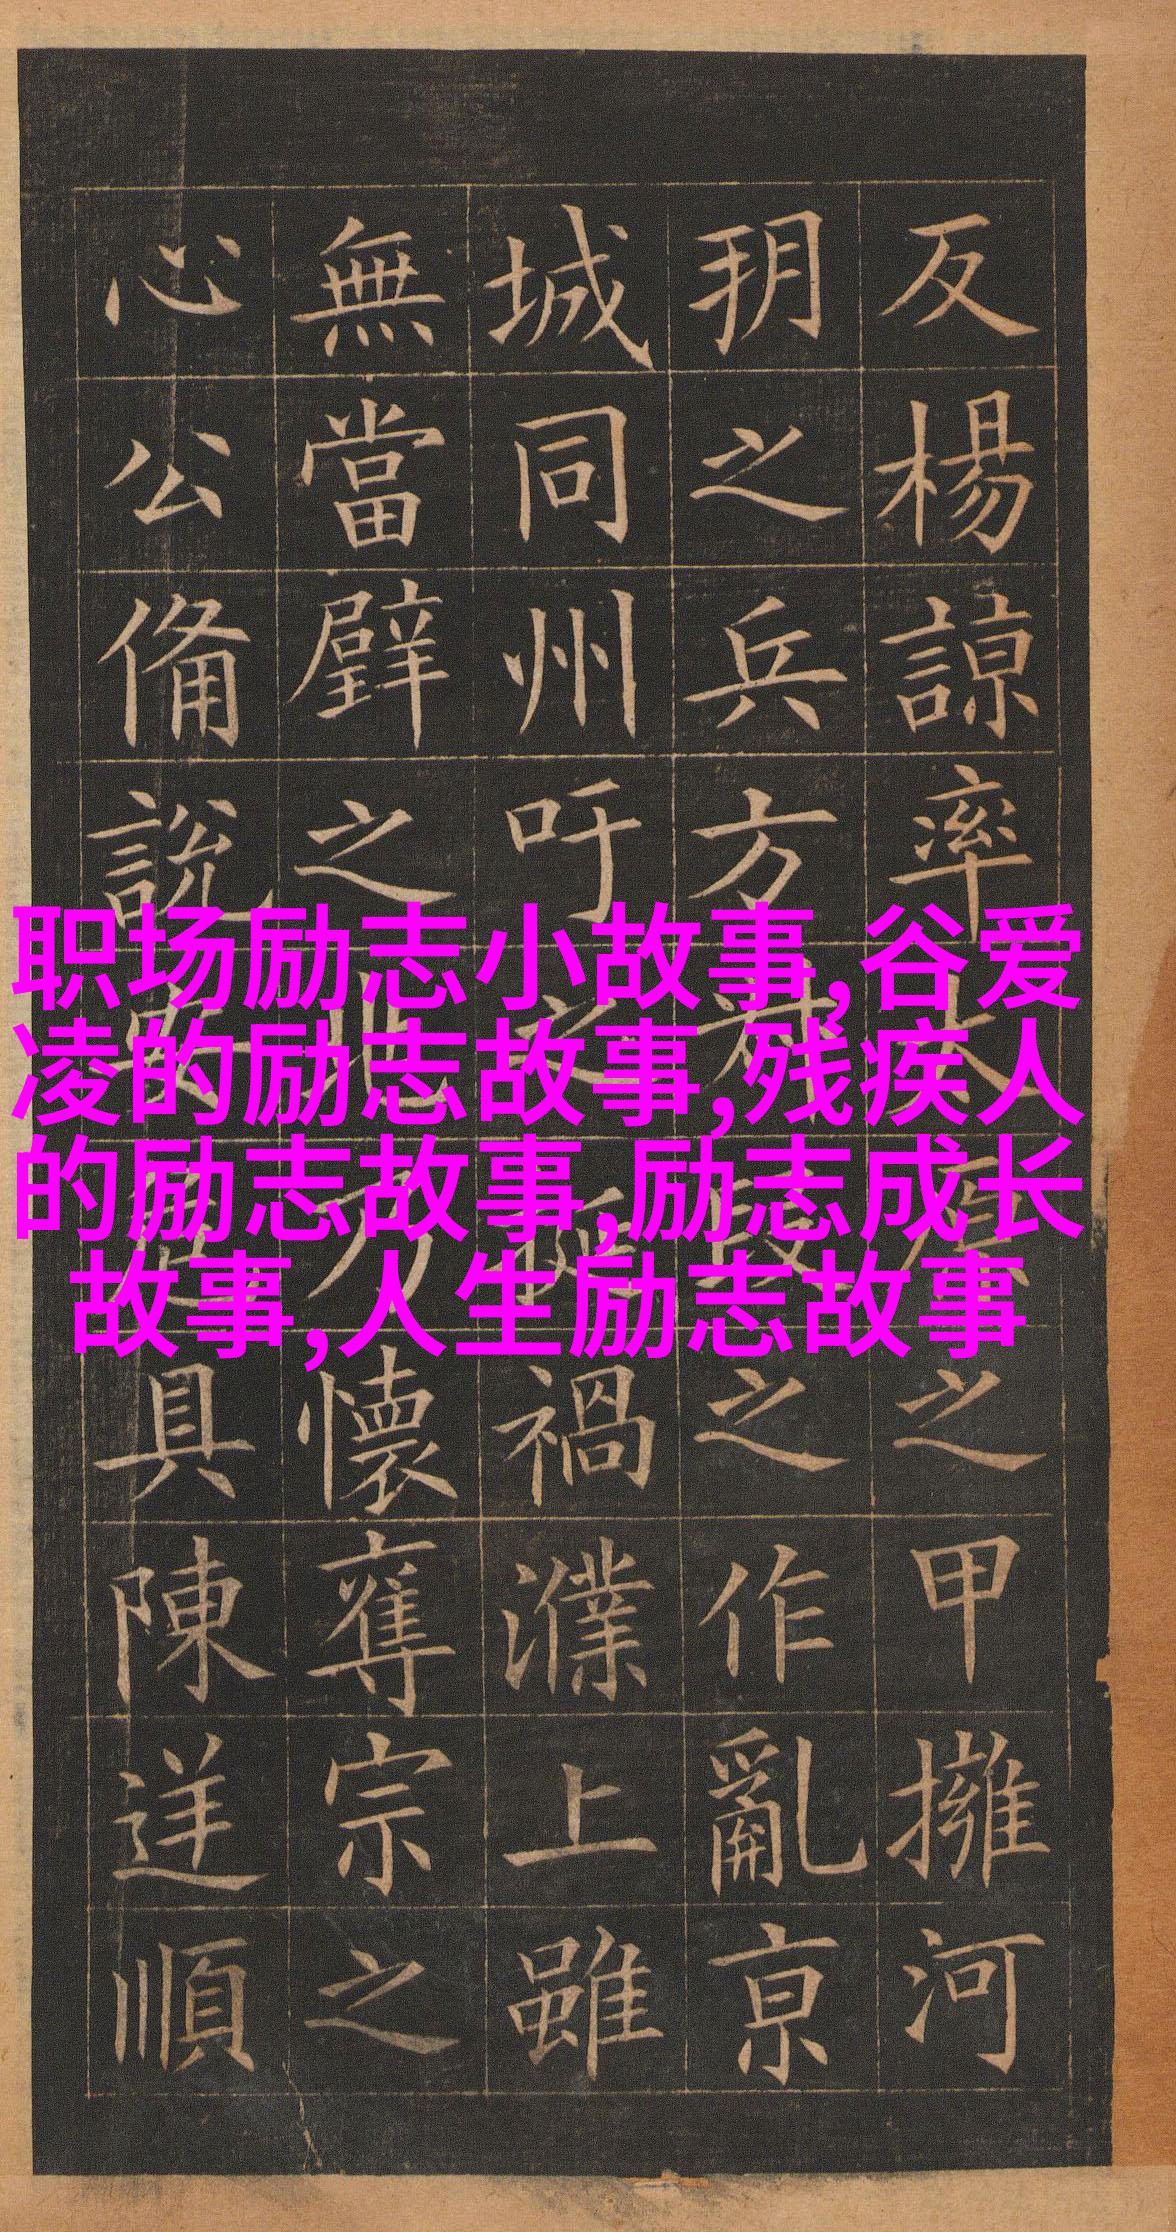 反楊諒率大原之甲擁河
朔之兵方叔段之作亂京
城同州吁之挻禍濮上雖
無當璧之兆乃懷奪宗之
心公備說安危具陳逆順
职场励志小故事,谷爱
凌的励志故事,残疾人
的励志故事,励志成长
故事,人生励志故事